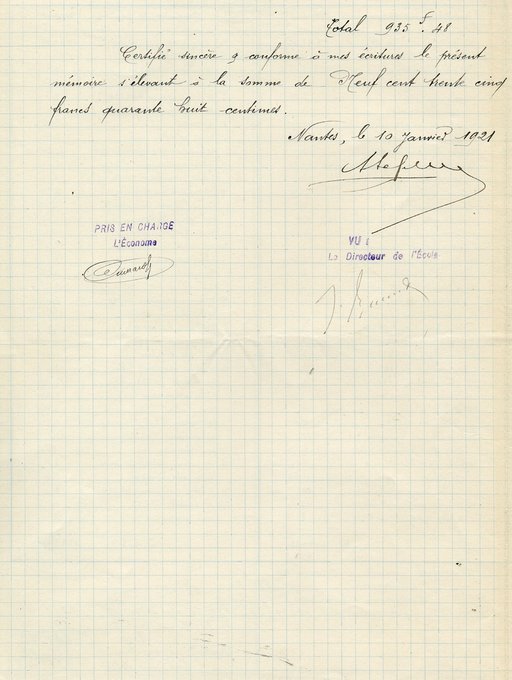 Total 935 f. 48
Certifié sincère & conforme à mes écritures le présent
mémoire s'élevant à la somme de Neuf cent trente cinq
francs quarante huit centimes.
Nantes, le 10 Janvier 1921
PRIS EN CHARGE
L'Économe
VU :
Le Directeur de l'École